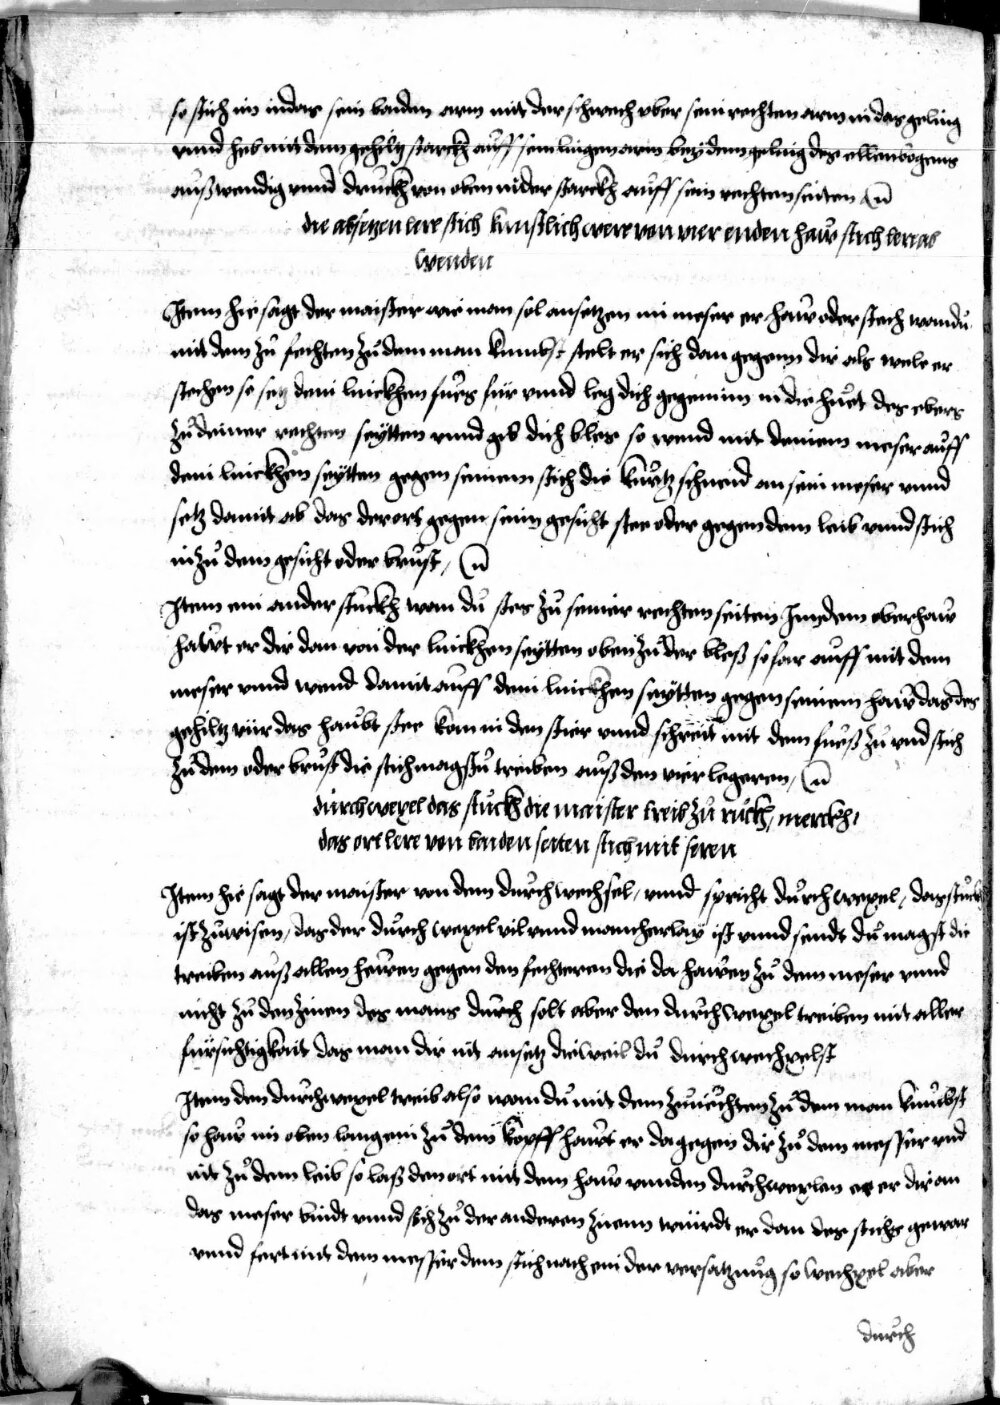 so stich im in das sein baiden arm mit der schwech vber sein rechten arm in das geling
vnnd heb mit dem gehiltz starckh auff sein lingen arm bey dem geling des ellenbogens
außwendig vnnd druckh von oben nider starckh auff sein rechten seiten
die absetzen lere stich kunstlich were von vier enden haw stich lere ab
wenden
Item hie sagt der maister wie man sol ansetzen im meser er haw oder stech wan du
mit dem zu fechten zu dem man kumbst stelt er sich dan gegenn dir als wele er
stechen so setz dein linckhen fues für vnnd leg dich gegen im in die huet des ebers
zu deiner rechten seytten vnnd gib dich bles so wend mit deinem meser auff
dein linckhen seytten gegen seinem stich die kurtz schneid an sein meser vnnd
setz damit ab das der ort gegen seim gesicht stee oder gegen dem leib vnnd stich
in zu dem gesicht oder brust,
Item ein ander stuckh wan du stes zu seiner rechten seiten Im dem eberhaw
hawt er dir dan von der linckhen seytten oben zu der bleß so far auff mit dem
meser vnnd wend damit auff dein linckhen seytten gegen seinem haw das das
gehiltz vür das haubt stee kom in den stier vnnd schreit mit dem fueß zu vnd stich
zu dem oder brust die stich magstu treiben auß den vier legeren,
durchwexel das stuckh die maister treib zu ruckh, merckh,
das ort lere von baiden seiten stich mit seren
Item hie sagt der maister von dem durchwechsel, vnnd spricht durchwexel, das stuckh
ist zu wisen, das der durch wexel vil vnnd mancherlay ist vnnd sendt du magst die
treiben auß allen hewen gegen den fechteren die da hawen zu dem meser vnnd
nicht zu den zinen des mans durch solt aber den durch wexel treiben mit aller
fürsichtigkait das man dir nit ansetz die weil du durch wechxelst
Item den durchwexel treib also wan du mit dem zuuechten zu dem man kumbst
so haw im oben langein zu dem kopff hawt er dagegen dir zu dem messer vnd
nit zu dem leib so laß den ort mit dem haw vnnden durchwexlen ee er dir an
das meser bindt vnnd stich zu der anderen zienn würdt er dan des stichs gewar
vnnd fert mit dem messer dem stich nach ein der versatzung so wechxel aber
durch